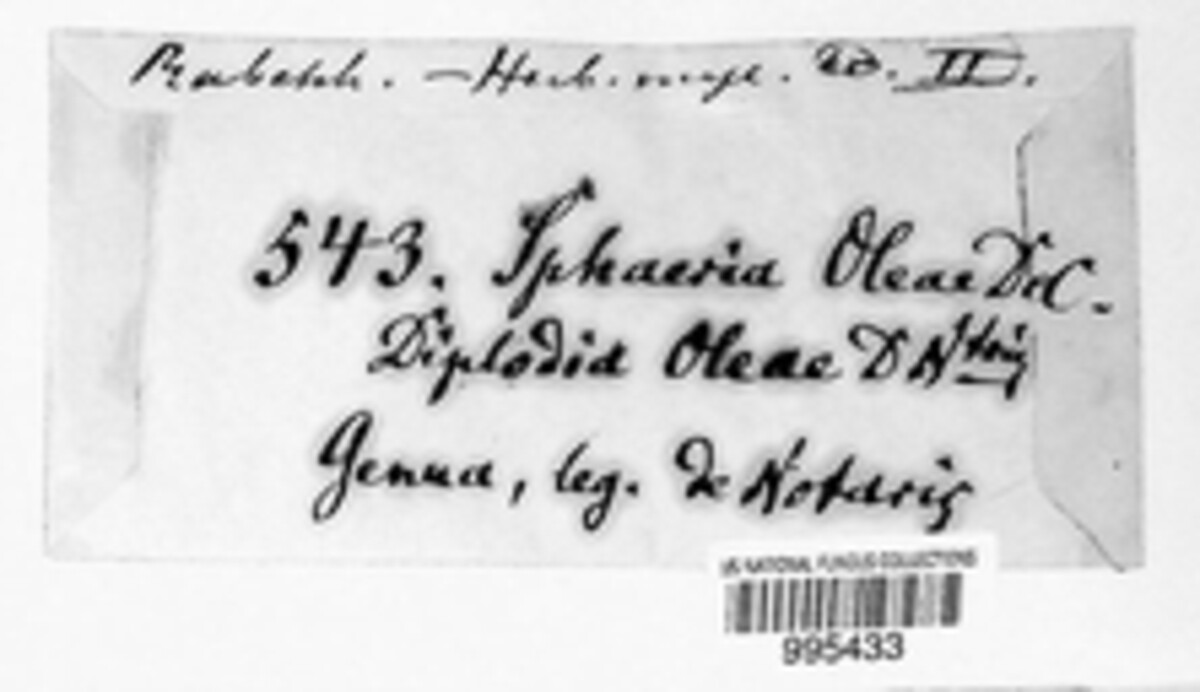 Rabenh. — Herb. myc. ed. II.
543. Sphaeria Oleae DeC.
Diplodia Oleae D Ntris
Genua, leg. De Notaris
US NATIONAL FUNGUS COLLECTIONS
995433